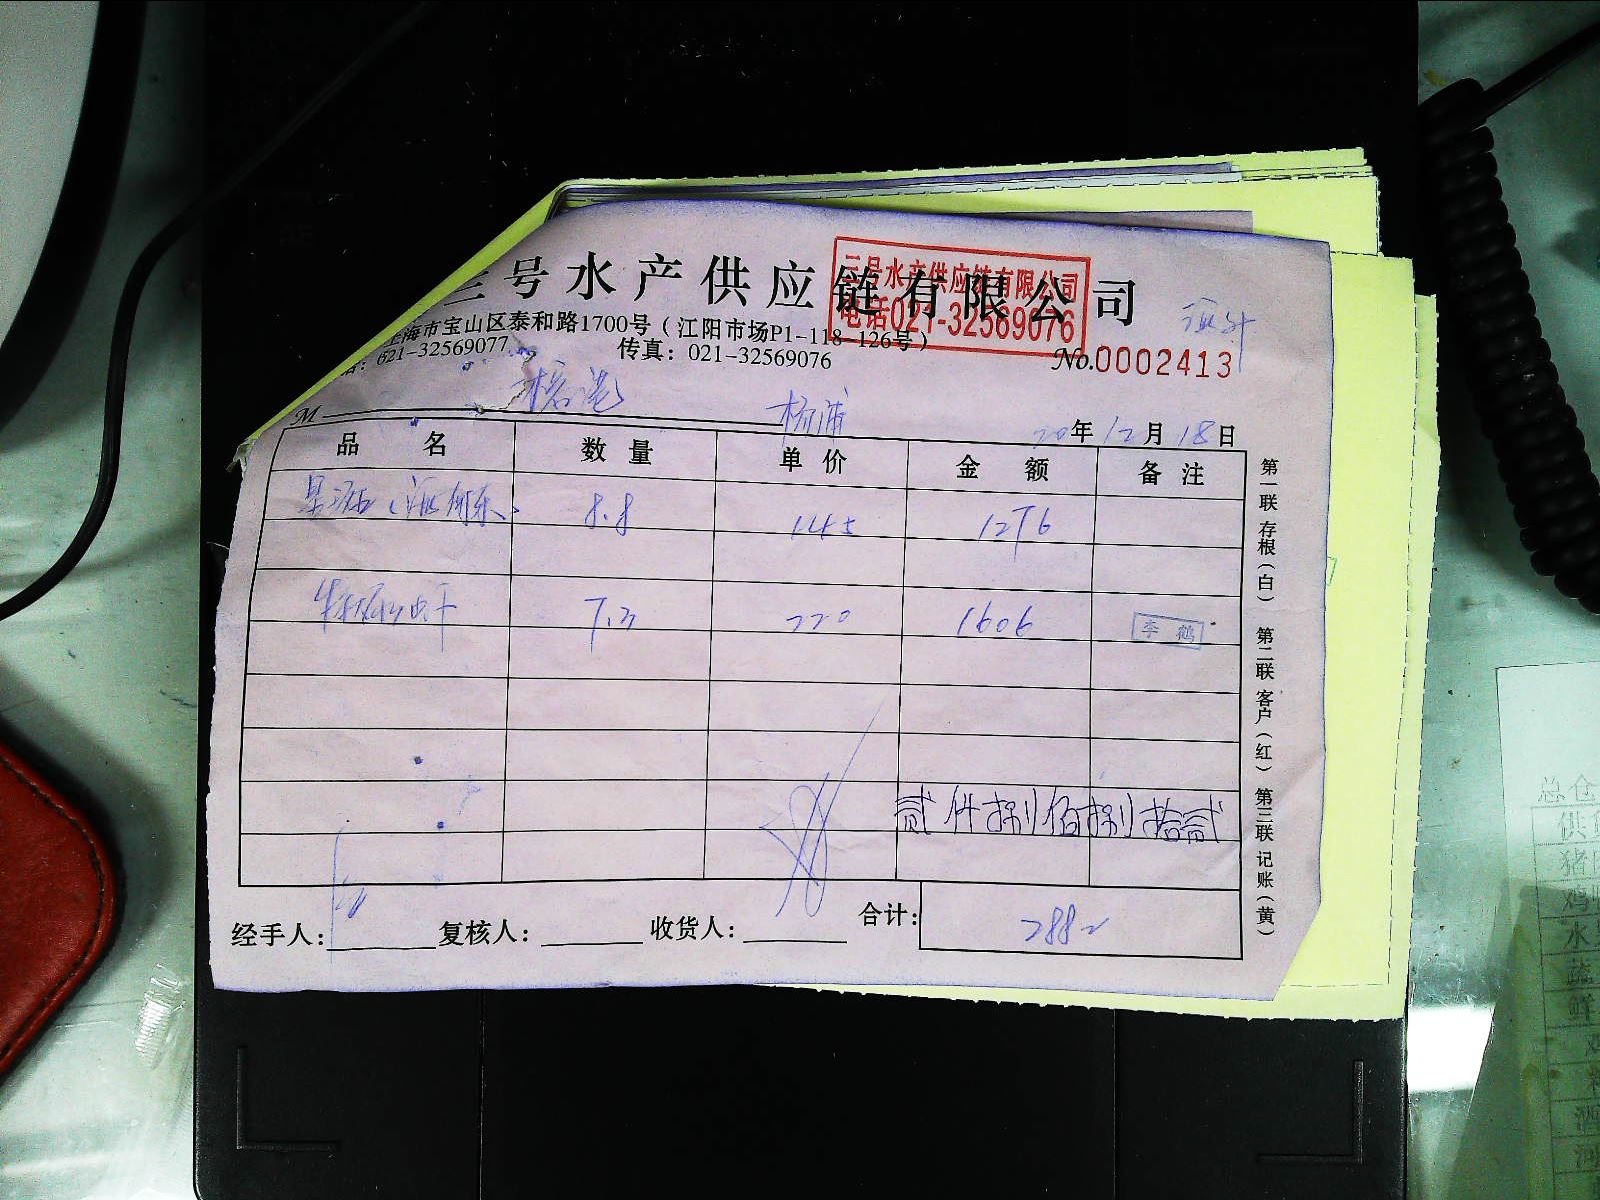 三号水产供应链有限公司
三号水产供应链有限公司
电话021-32569076
上海市宝山区泰和路1700号（江阳市场P1-118-126号）
021-32569077 传真：021-32569076
No.0002413
榕港
M 杨浦 20年12月18日
品名 数量 单价 金额 备注
8.8 145 1276
7.3 220 1606 李鹤
贰仟捌佰捌拾贰
经手人： 复核人： 收货人： 合计： 2882
第一联存根（白） 第二联客户（红） 第三联记账（黄）
总仓
供
猪
鸡
水
蔬
鲜